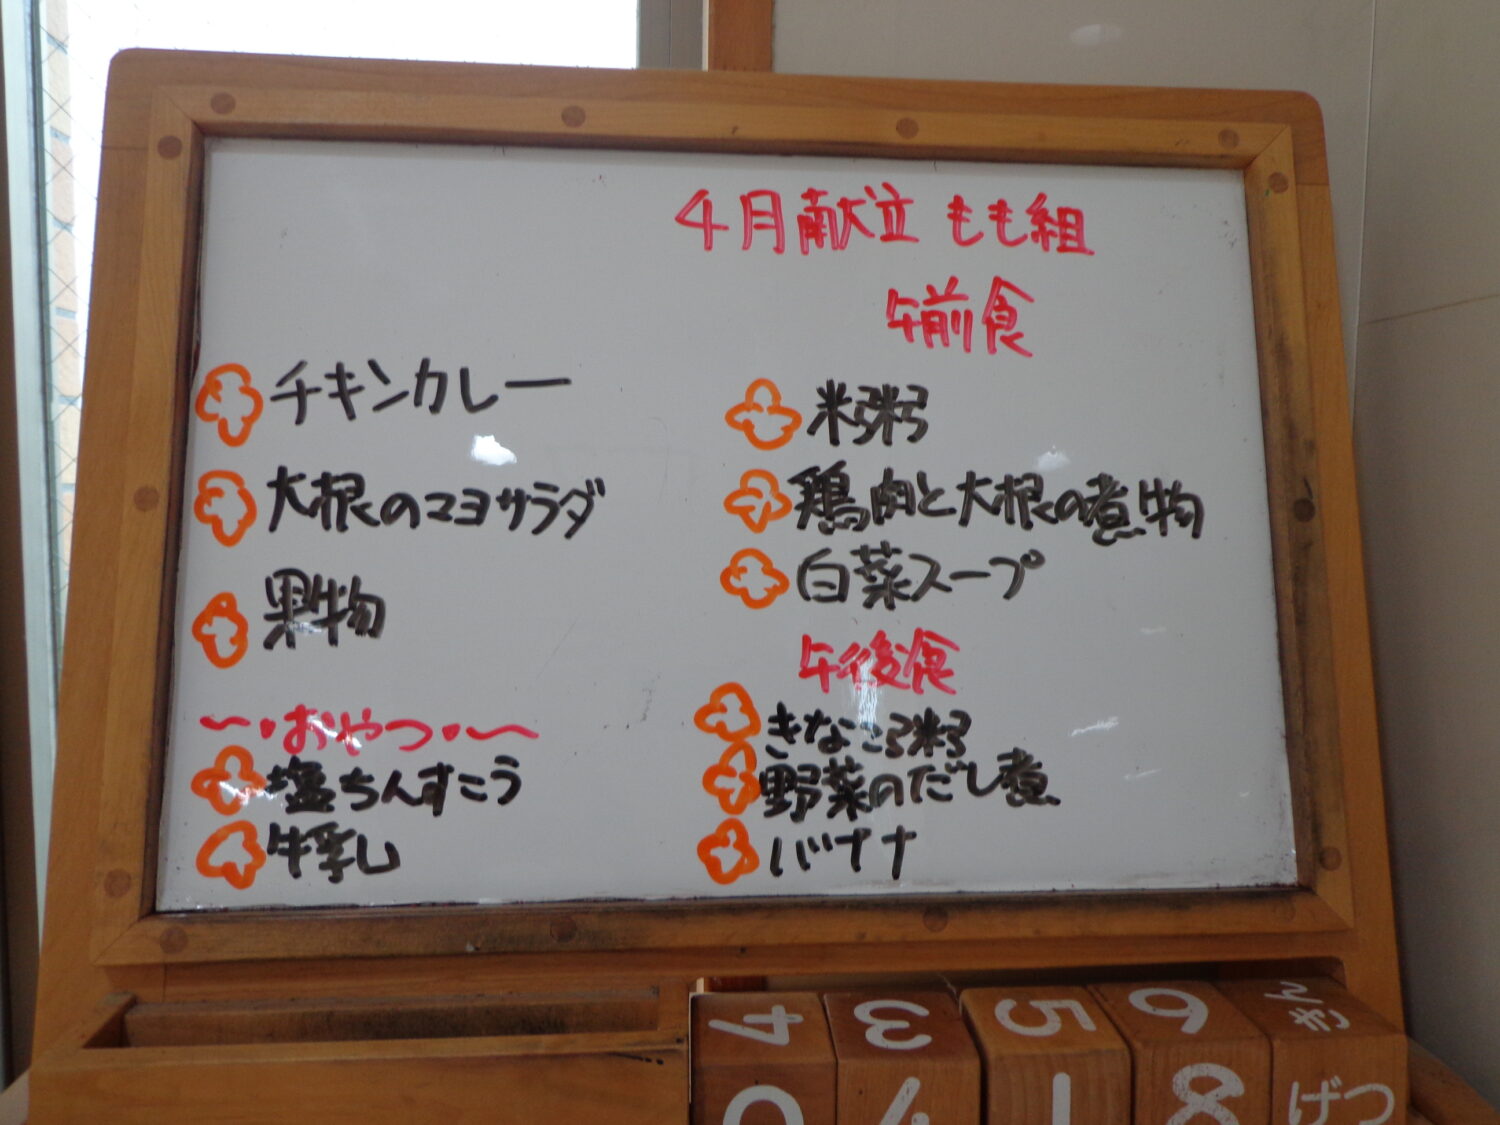 4月献立 もも組
午前食
チキンカレー
大根のマヨサラダ
果物
〜・おやつ・〜
塩ちんすこう
牛乳
米粥
鶏肉と大根の煮物
白菜スープ
午後食
きなこ粥
野菜のだし煮
バナナ
4 3 5 6 きん
0 1 8 げつ